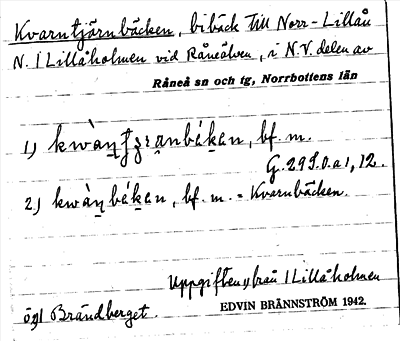 Kvarntjärnbäcken, bibäck till Norr-Lillån
N. i Lillåholmen vid Råneälven, i N.V. delen av
Råneå sn och tg, Norrbottens län
1) bf. m.
G. 29 S.0. a 1, 12.
2) bf. m. = Kvarnbäcken.
Uppgiften från i Lillåholmen
ögl Brändberget.
EDVIN BRÄNNSTRÖM 1942.